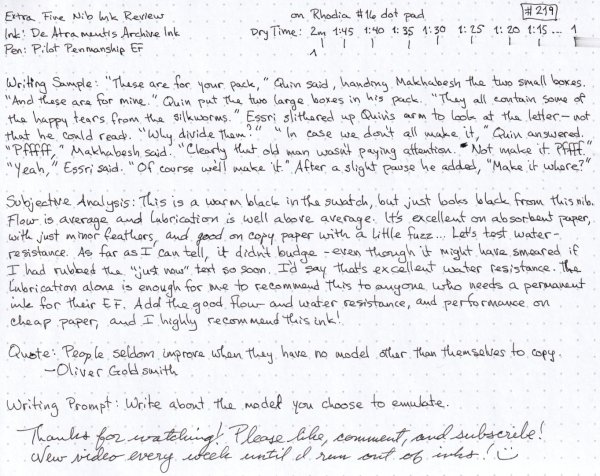 Extra Fine Nib Ink Review on Rhodia #16 dot pad #219
Ink: De Atramentis Archive Ink Dry Time: 2m 1:45 1:40 1:35 1:30 1:25 1:20 1:15... 1
Pen: Pilot Penmanship EF
Writing Sample: "These are for your pack," Quin said, handing Makhabesh the two small boxes.
"And these are for mine." Quin put the two large boxes in his pack. "They all contain some of
the happy tears from the silkworms." Essri slithered up Quin's arm to look at the letter—not
that he could read. "Why divide them?" "In case we don't all make it," Quin answered.
"Pfffff," Makhabesh said. "Clearly that old man wasn't paying attention. Not make it. Pffff."
"Yeah," Essri said. "Of course we'll make it." After a slight pause he added, "Make it where?"
Subjective Analysis: This is a warm black in the swatch, but just looks black from this nib.
Flow is average and lubrication is well above average. It's excellent on absorbent paper,
with just minor feathers, and good on copy paper with a little fuzz... Let's test water-
resistance. As far as I can tell, it didn't budge - even though it might have smeared if
I had rubbed the "just now" text so soon. I'd say that's excellent water resistance. The
lubrication alone is enough for me to recommend this to anyone who needs a permanent
ink for their EF. Add the good flow and water resistance, and performance on
cheap paper, and I highly recommend this ink!
Quote: People seldom improve when they have no model other than themselves to copy.
—Oliver Goldsmith
Writing Prompt: Write about the model you choose to emulate.
Thanks for watching! Please like, comment, and subscribe!
New video every week until I run out of inks! :)